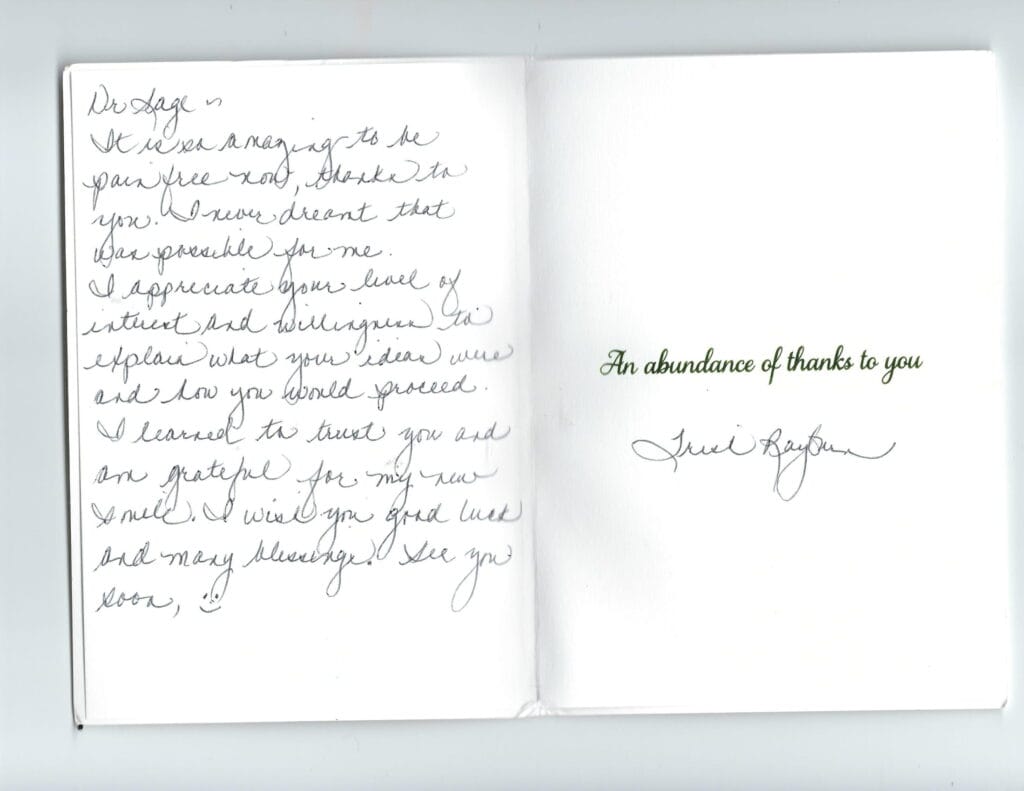 Dr Sage ~
It is so amazing to be
pain free now, thanks to
you. I never dreamt that
was possible for me.
I appreciate your level of
interest and willingness to
explain what your ideas were
and how you would proceed.
I learned to trust you and
am grateful for my new
smile. I wish you good luck
and many blessings. See you
soon,
An abundance of thanks to you